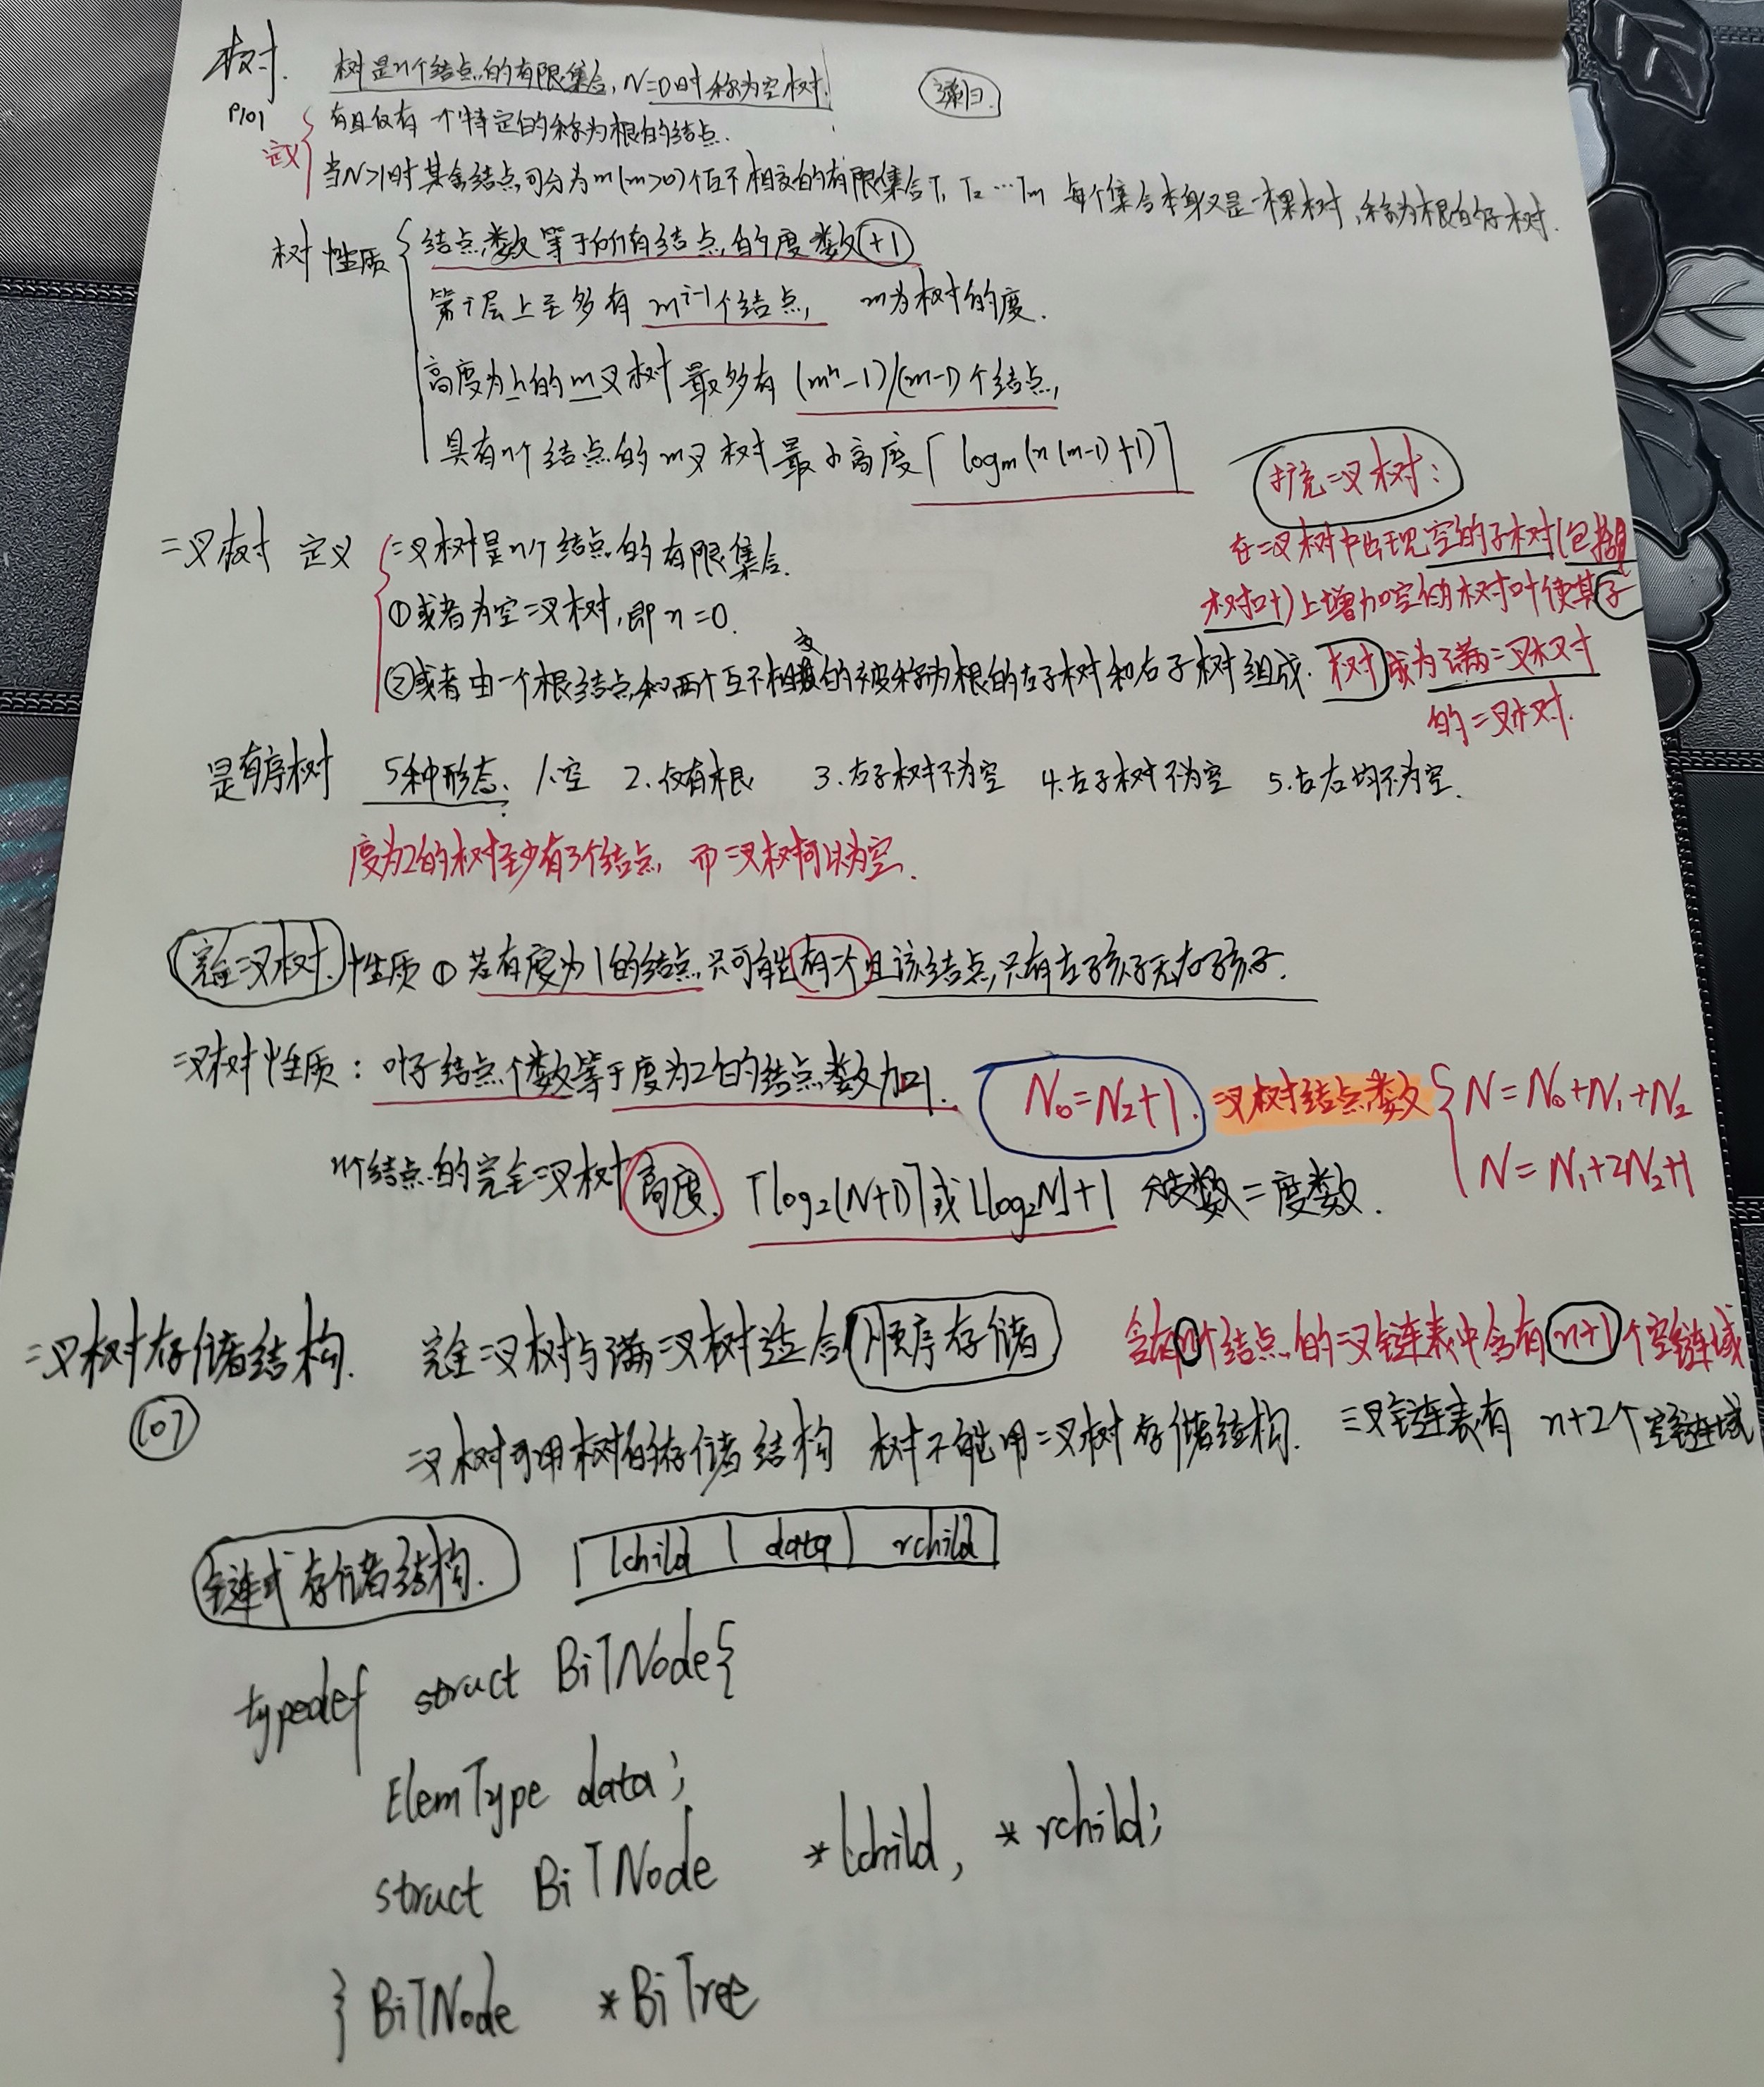 树. 树是n个结点的有限集合, N=0时称为空树. 递归.
P101
定义 有且仅有一个特定的称为根的结点.
当N>1时其余结点可分为m(m>0)个互不相交的有限集合T₁ T₂…Tm 每个集合本身又是一棵树,称为根的子树.
树 性质 结点数等于所有结点的度数+1
第i层上至多有 mⁱ⁻¹个结点, m为树的度.
高度为h的m叉树最多有 (mʰ-1)/(m-1)个结点,
具有n个结点的m叉树最小高度⌈logm(n(m-1)+1)⌉
扩充二叉树:
在二叉树中出现空的子树(包括
树叶)上增加空的树叶使其子
树 成为满二叉树
的二叉树.
二叉树 定义 二叉树是n个结点的有限集合.
①或者为空二叉树,即n=0.
②或者由一个根结点和两个互不相交的被称为根的左子树和右子树组成.
是有序树 5种形态: 1.空 2.仅有根 3.右子树不为空 4.左子树不为空 5.左右均不为空.
度为2的树至少有3个结点, 而二叉树可以为空.
完全二叉树. 性质 ① 若有度为1的结点,只可能有一个且该结点只有左孩子无右孩子.
二叉树性质: 叶子结点个数等于度为2的结点数加1. N₀=N₂+1. 二叉树结点数 N=N₀+N₁+N₂
N=N₁+2N₂+1
n个结点的完全二叉树高度. ⌈log₂(N+1)⌉或⌊log₂N⌋+1 分支数=度数.
二叉树存储结构. 完全二叉树与满二叉树适合顺序存储 含有n个结点的二叉链表中含有n+1个空链域
107
二叉树可用树的存储结构 树不能用二叉树存储结构. 三叉链表有 n+2个空链域
链式存储结构. lchild | data | rchild
typedef struct BiTNode{
ElemType data;
struct BiTNode *lchild, *rchild;
}BiTNode *BiTree